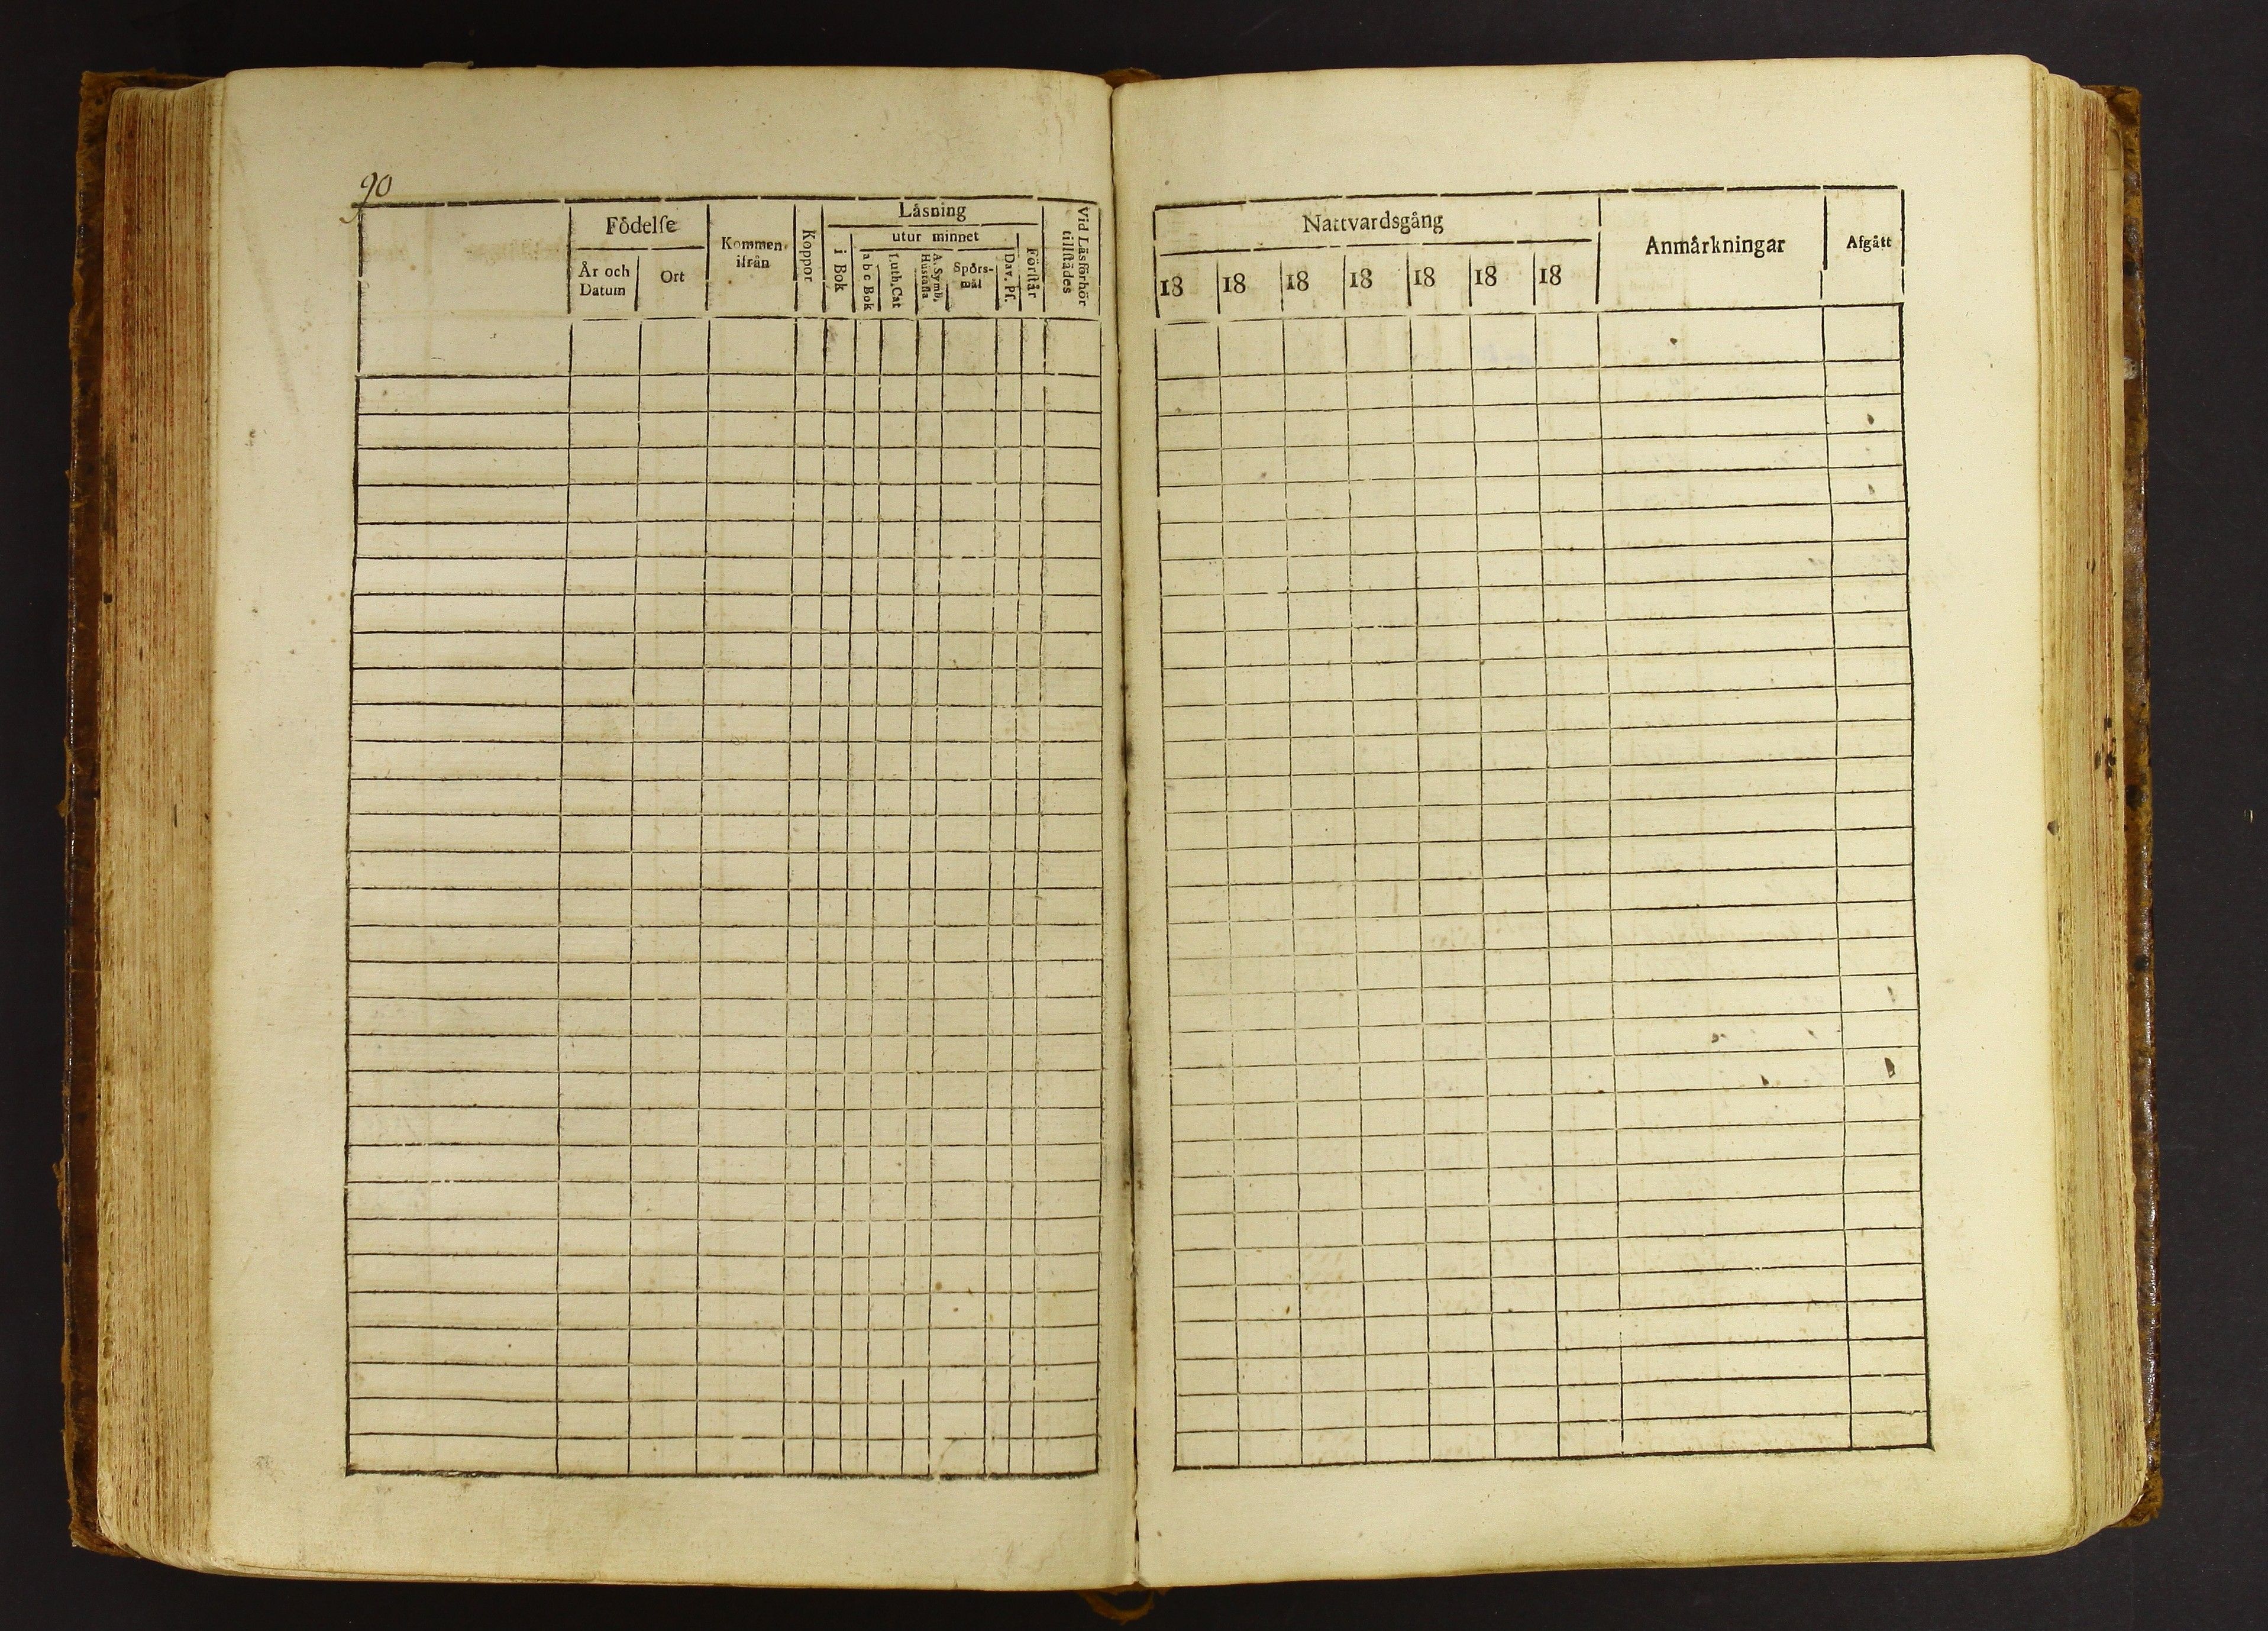 90
Födelſe
År och
Datum
Ort
Kommen
ifrån
Koppor
Läsning
i Bok
utur minnet
a b c Bok
Luth. Cat
A. Symb.
Hustafla
Spörs-
mål
Dav. Pſ.
Förſtår
Vid Läsförhör
tillſtädes
Nattvardsgång
18 18 18 18 18 18 18
Anmärkningar
Afgått